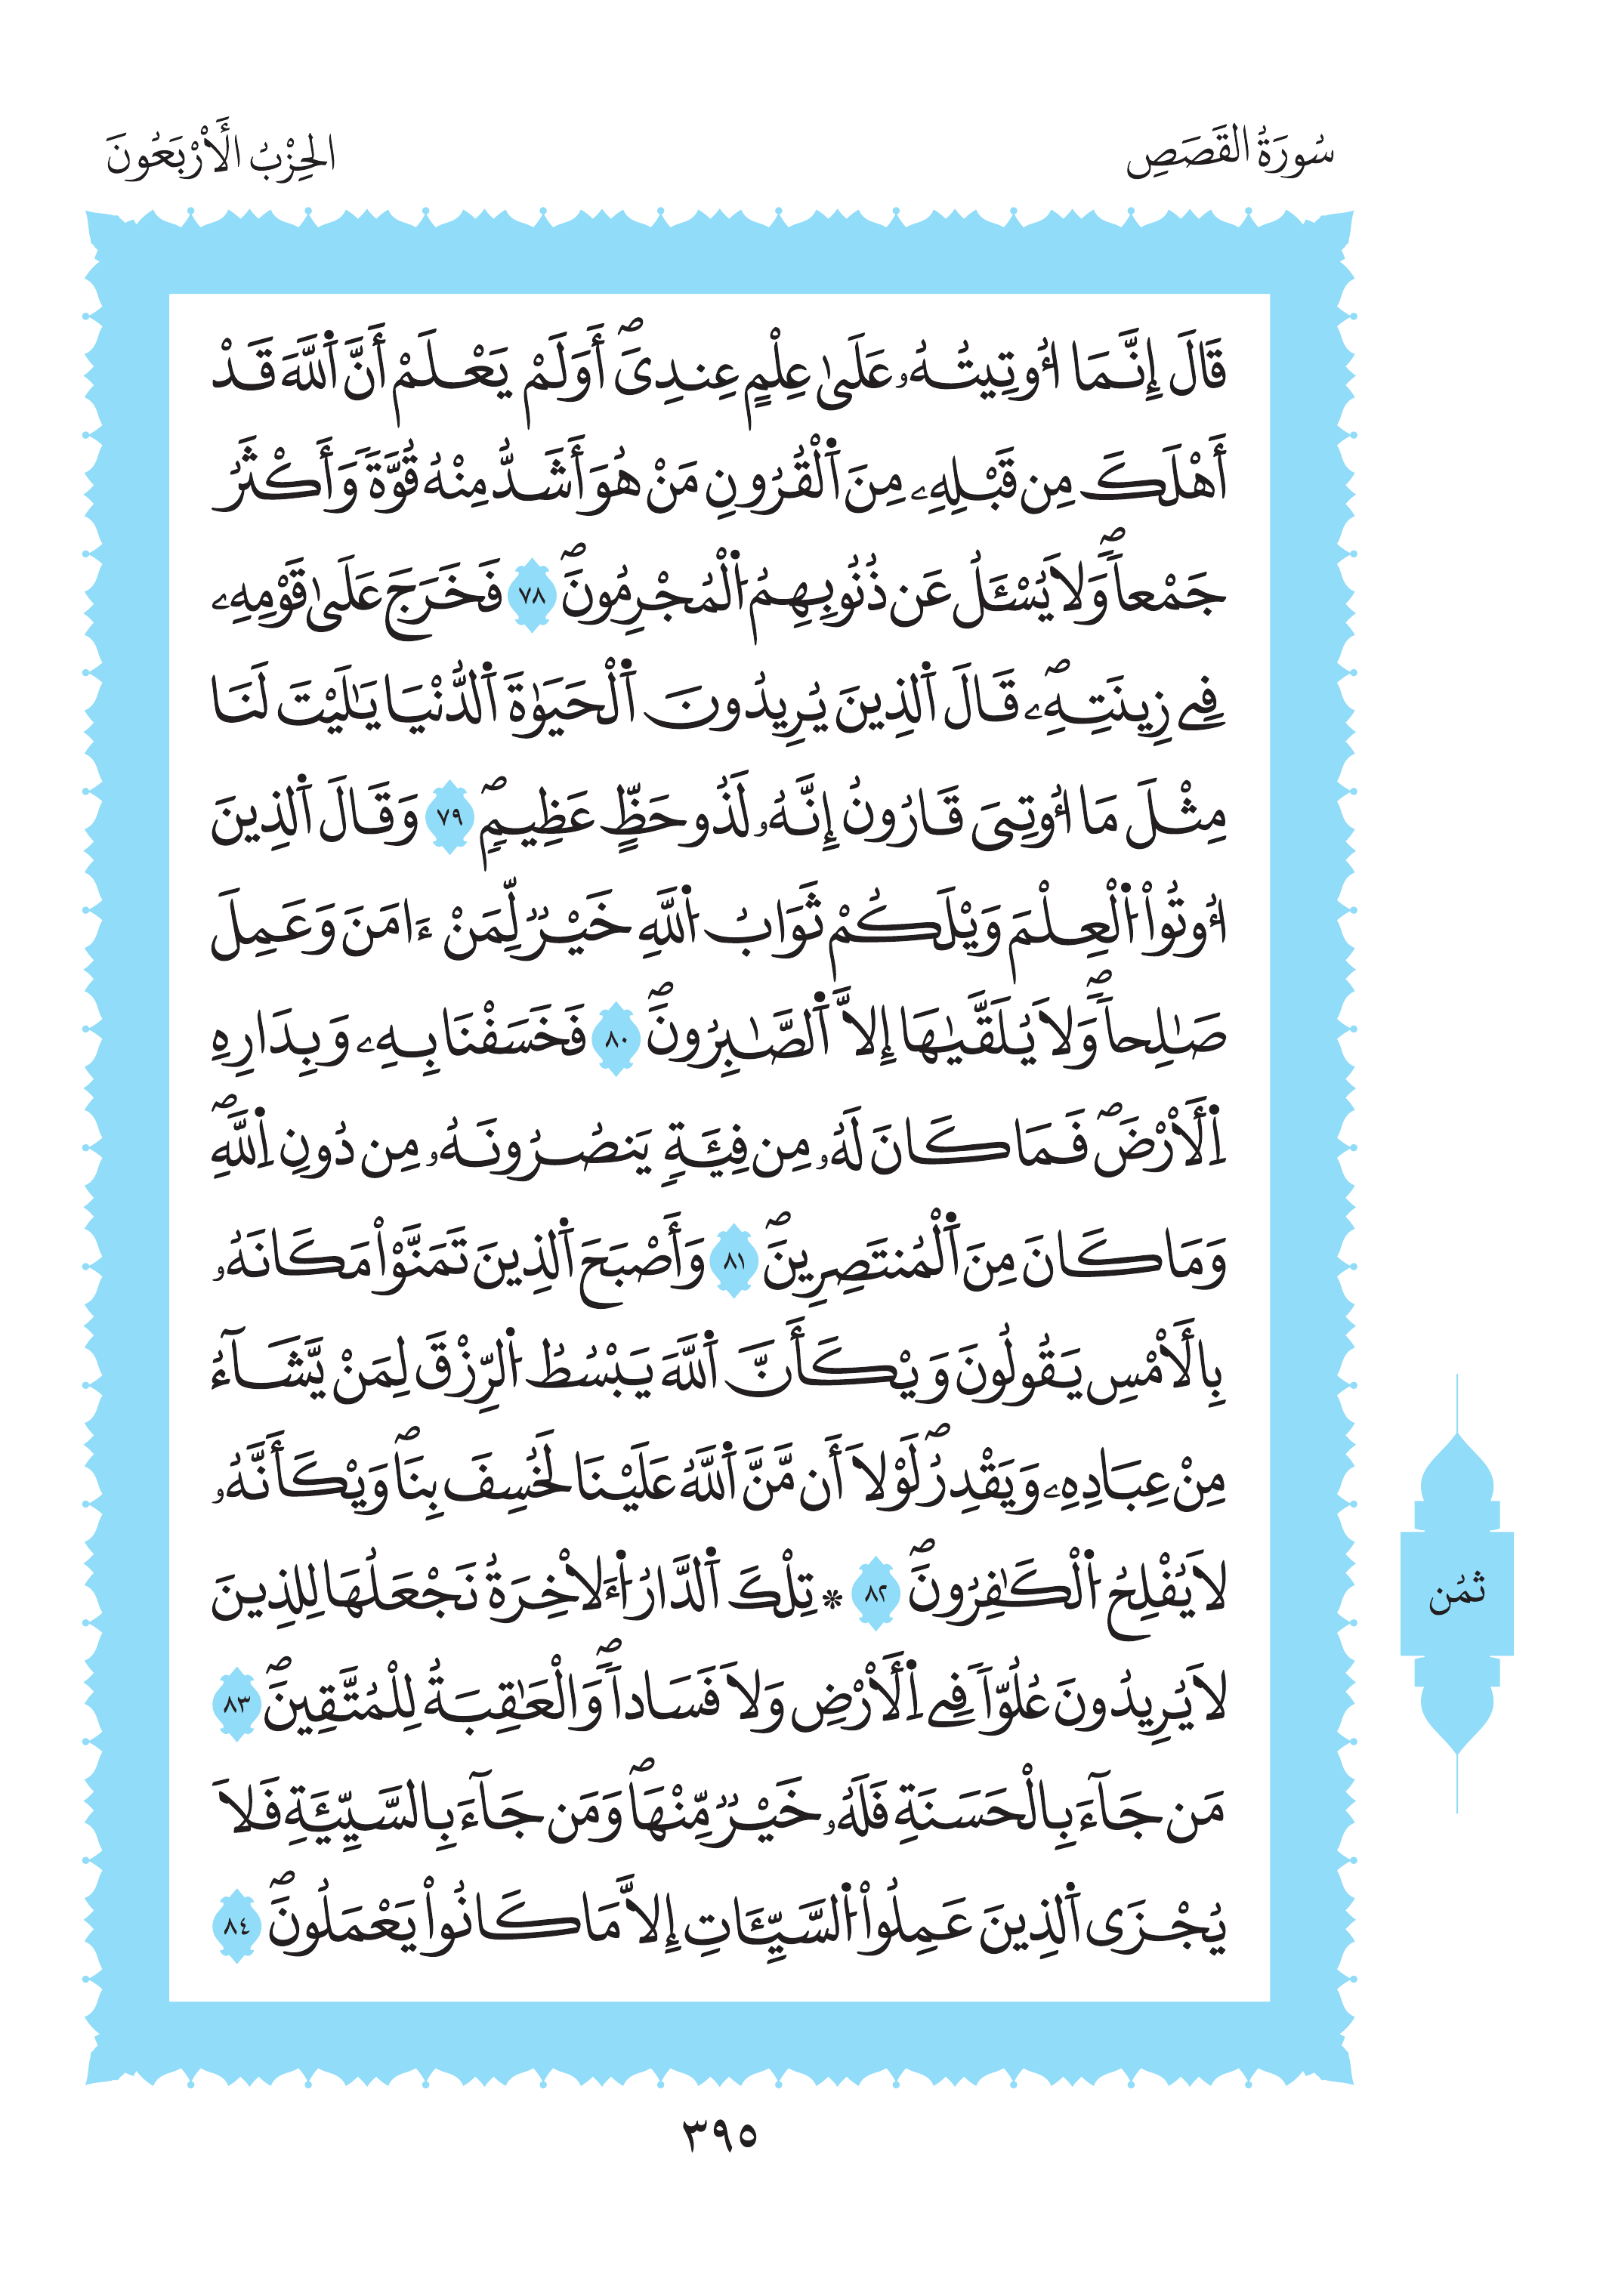 سُورَةُ القَصَصِ
الحِزْبُ الأَرْبَعُونَ
قَالَ إِنَّمَا أُوتِيتُهُۥ عَلَىٰ عِلْمٍ عِندِىَۖ أَوَلَمْ يَعْلَمْ أَنَّ ٱللَّهَ قَدْ
أَهْلَكَ مِن قَبْلِهِۦ مِنَ ٱلْقُرُونِ مَنْ هُوَ أَشَدُّ مِنْهُ قُوَّةً وَأَكْثَرُ
جَمْعاًۖ وَلاَ يُسْـَٔلُ عَن ذُنُوبِهِمُ ٱلْمُجْرِمُونَۖ ٧٨ فَخَرَجَ عَلَىٰ قَوْمِهِۦ
فِے زِينَتِهِۦۖ قَالَ ٱلذِينَ يُرِيدُونَ ٱلْحَيَوٰةَ ٱلدُّنْيَا يَٰلَيْتَ لَنَا
مِثْلَ مَا أُوتِىَ قَارُونُ إِنَّهُۥ لَذُو حَظٍّ عَظِيمٍۖ ٧٩ وَقَالَ ٱلذِينَ
أُوتُواْ ٱلْعِلْمَ وَيْلَكُمْ ثَوَابُ ٱللَّهِ خَيْرٌ لِّمَنْ ءَامَنَ وَعَمِلَ
صَٰلِحاًۖ وَلاَ يُلَقَّىٰهَا إِلاَّ ٱلصَّٰبِرُونَۖ ٨٠ فَخَسَفْنَا بِهِۦ وَبِدَارِهِ
ٱلَأرْضَۖ فَمَا كَانَ لَهُۥ مِن فِئَةٍ يَنصُرُونَهُۥ مِن دُونِ ٱللَّهِۖ
وَمَا كَانَ مِنَ ٱلْمُنتَصِرِينَۖ ٨١ وَأَصْبَحَ ٱلذِينَ تَمَنَّوْاْ مَكَانَهُۥ
بِالَأمْسِ يَقُولُونَ وَيْكَأَنَّ ٱللَّهَ يَبْسُطُ ٱلرِّزْقَ لِمَنْ يَّشَآءُ
مِنْ عِبَادِهِۦ وَيَقْدِرُۖ لَوْلاَ أَن مَّنَّ ٱللَّهُ عَلَيْنَا لَخُسِفَ بِنَاۖ وَيْكَأَنَّهُۥ
لاَ يُفْلِحُ ٱلْكَٰفِرُونَۖ ٨٢ * تِلْكَ ٱلدَّارُ ٱءَلاْخِرَةُ نَجْعَلُهَا لِلذِينَ
لاَ يُرِيدُونَ عُلُوّاً فِے ٱلَأرْضِ وَلاَ فَسَاداًۖ وَالْعَٰقِبَةُ لِلْمُتَّقِينَۖ ٨٣
مَن جَآءَ بِالْحَسَنَةِ فَلَهُۥ خَيْرٌ مِّنْهَاۖ وَمَن جَآءَ بِالسَّيِّئَةِ فَلاَ
يُجْزَى ٱلذِينَ عَمِلُواْ ٱلسَّيِّـَٔاتِ إِلاَّ مَا كَانُواْ يَعْمَلُونَۖ ٨٤
ثمُن
٣٩٥